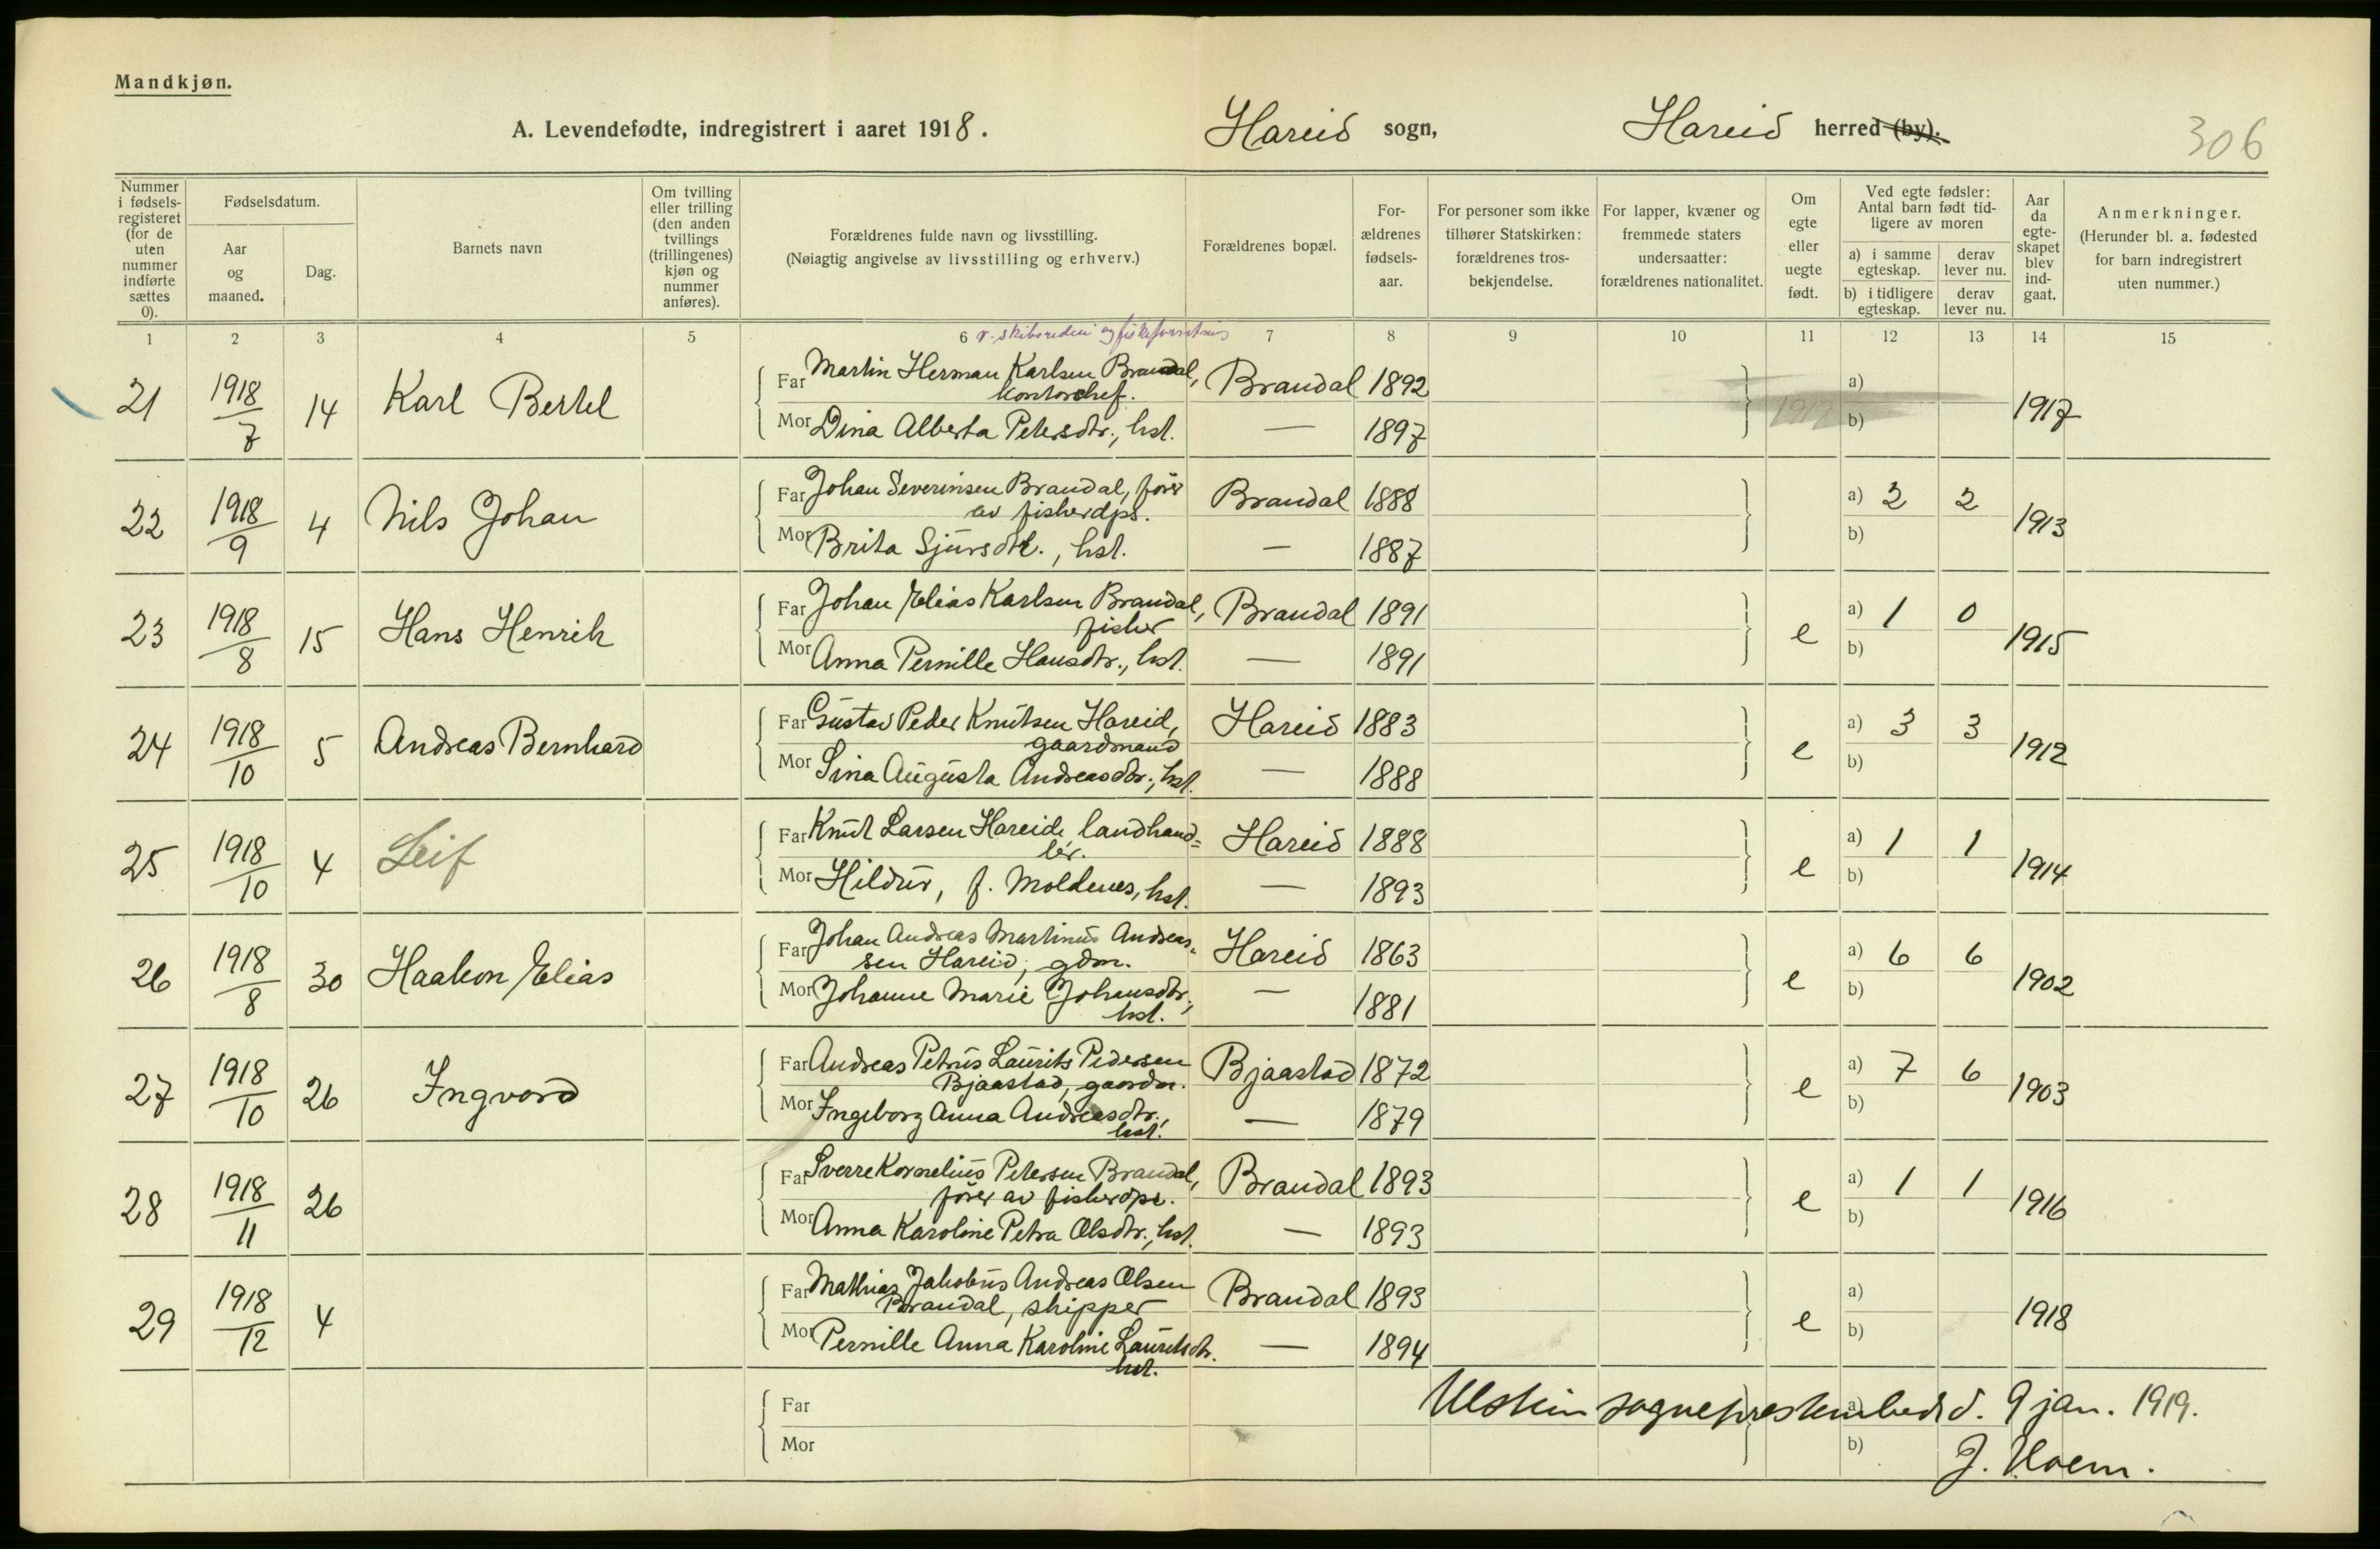 Mandkjøn.
A. Levendefødte, indregistrert i aaret 1918. Hareid sogn, Hareid herred (by).
306
Nummer i fødselsregisteret (for de uten nummer indførte sættes 0).
Fødselsdatum.
Aar og maaned.
Dag.
Barnets navn
Om tvilling eller trilling (den anden tvillings (trillingenes) kjøn og nummer anføres).
Forældrenes fulde navn og livsstilling.
(Nøiagtig angivelse av livsstilling og erhverv.)
Forældrenes bopæl.
For-ældrenes fødsels-aar.
For personer som ikke tilhører Statskirken: forældrenes tros-bekjendelse.
For lapper, kvæner og fremmede staters undersaatter: forældrenes nationalitet.
Om egte eller uegte født.
Ved egte fødsler: Antal barn født tid-ligere av moren
a) i samme egteskap. derav lever nu.
b) i tidligere egteskap. derav lever nu.
Aar da egte-skapet blev ind-gaat.
Anmerkninger.
(Herunder bl. a. fødested for barn indregistrert uten nummer.)
1 2 3 4 5 6 7 8 9 10 11 12 13 14 15
21 1918/7 14 Karl Bertel
Far Martin Herman Karlsen Brandal, Brandal 1892 a)
kontorchef.
Mor Dina Alberta Petersdtr., hst. — 1897 b) 1917
22 1918/9 4 Nils Johan
Far Johan Severinsen Brandal, fører Brandal 1888 a) 2 2
av fiskerdps.
Mor Brita Sjursdtr., hst. — 1887 b) 1913
23 1918/8 15 Hans Henrik
Far Johan Elias Karlsen Brandal, Brandal 1891 a) 1 0
fisker
Mor Anna Pernille Hansdtr., hst. — 1891 e b) 1915
24 1918/10 5 Andreas Bernhard
Far Gustav Peder Knutsen Hareid, Hareid 1883 a) 3 3
gaardmand
Mor Sina Augusta Andreasdtr., hst. — 1888 e b) 1912
25 1918/10 4 Leif
Far Knut Larsen Hareide landhand= Hareid 1888 a) 1 1
ler.
Mor Hildur, f. Moldenes, hst. — 1893 e b) 1914
26 1918/8 30 Haakon Elias
Far Johan Andreas Martinus Andreas- Hareid 1863 a) 6 6
sen Hareid, gdm.
Mor Johanne Marie Johansdtr., — 1881 e b) 1902
hst.
27 1918/10 26 Ingvard
Far Andreas Petrus Laurits Pedersen Bjaastad 1872 a) 7 6
Bjaastad, gaardm.
Mor Ingeborg Anna Andreasdtr., — 1879 e b) 1903
hst.
28 1918/11 26
Far Sverre Kornelius Petersen Brandal, Brandal 1893 a) 1 1
fører av fiskerdps.
Mor Anna Karoline Petra Olsdtr., hst. — 1893 e b) 1916
29 1918/12 4
Far Mathias Jakobus Andreas Olsen Brandal 1893 a)
Brandal, skipper
Mor Pernille Anna Karoline Lauritsdtr. — 1894 e b) 1918
hst.
Far Ulstein sogneprestembed d. 9 jan. 1919. a)
Mor b)
J. Hoem.